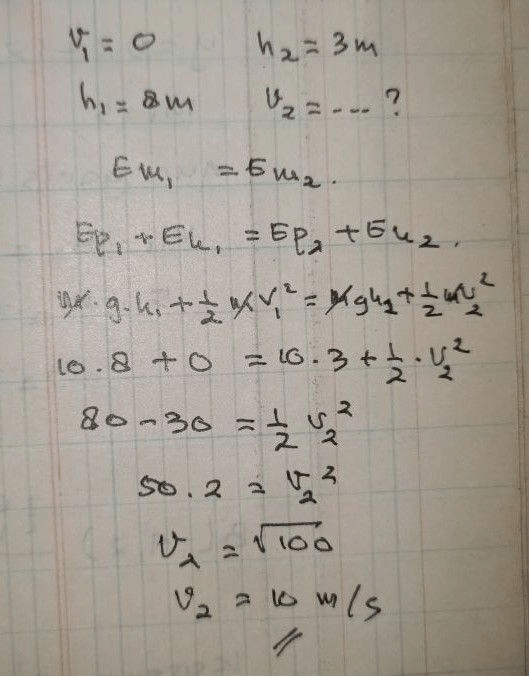 v₁ = 0 h₂ = 3m
h₁ = 8m v₂ = ---- ?
Em₁ = Em₂.
Ep₁ + Ek₁ = Ep₂ + Ek₂.
m.g.h₁ + ½ m v₁² = m g h₂ + ½ m v₂²
10.8 + 0 = 10.3 + ½ . v₂²
80 - 30 = ½ v₂²
50.2 = v₂²
v₂ = √100
v₂ = 10 m/s
//